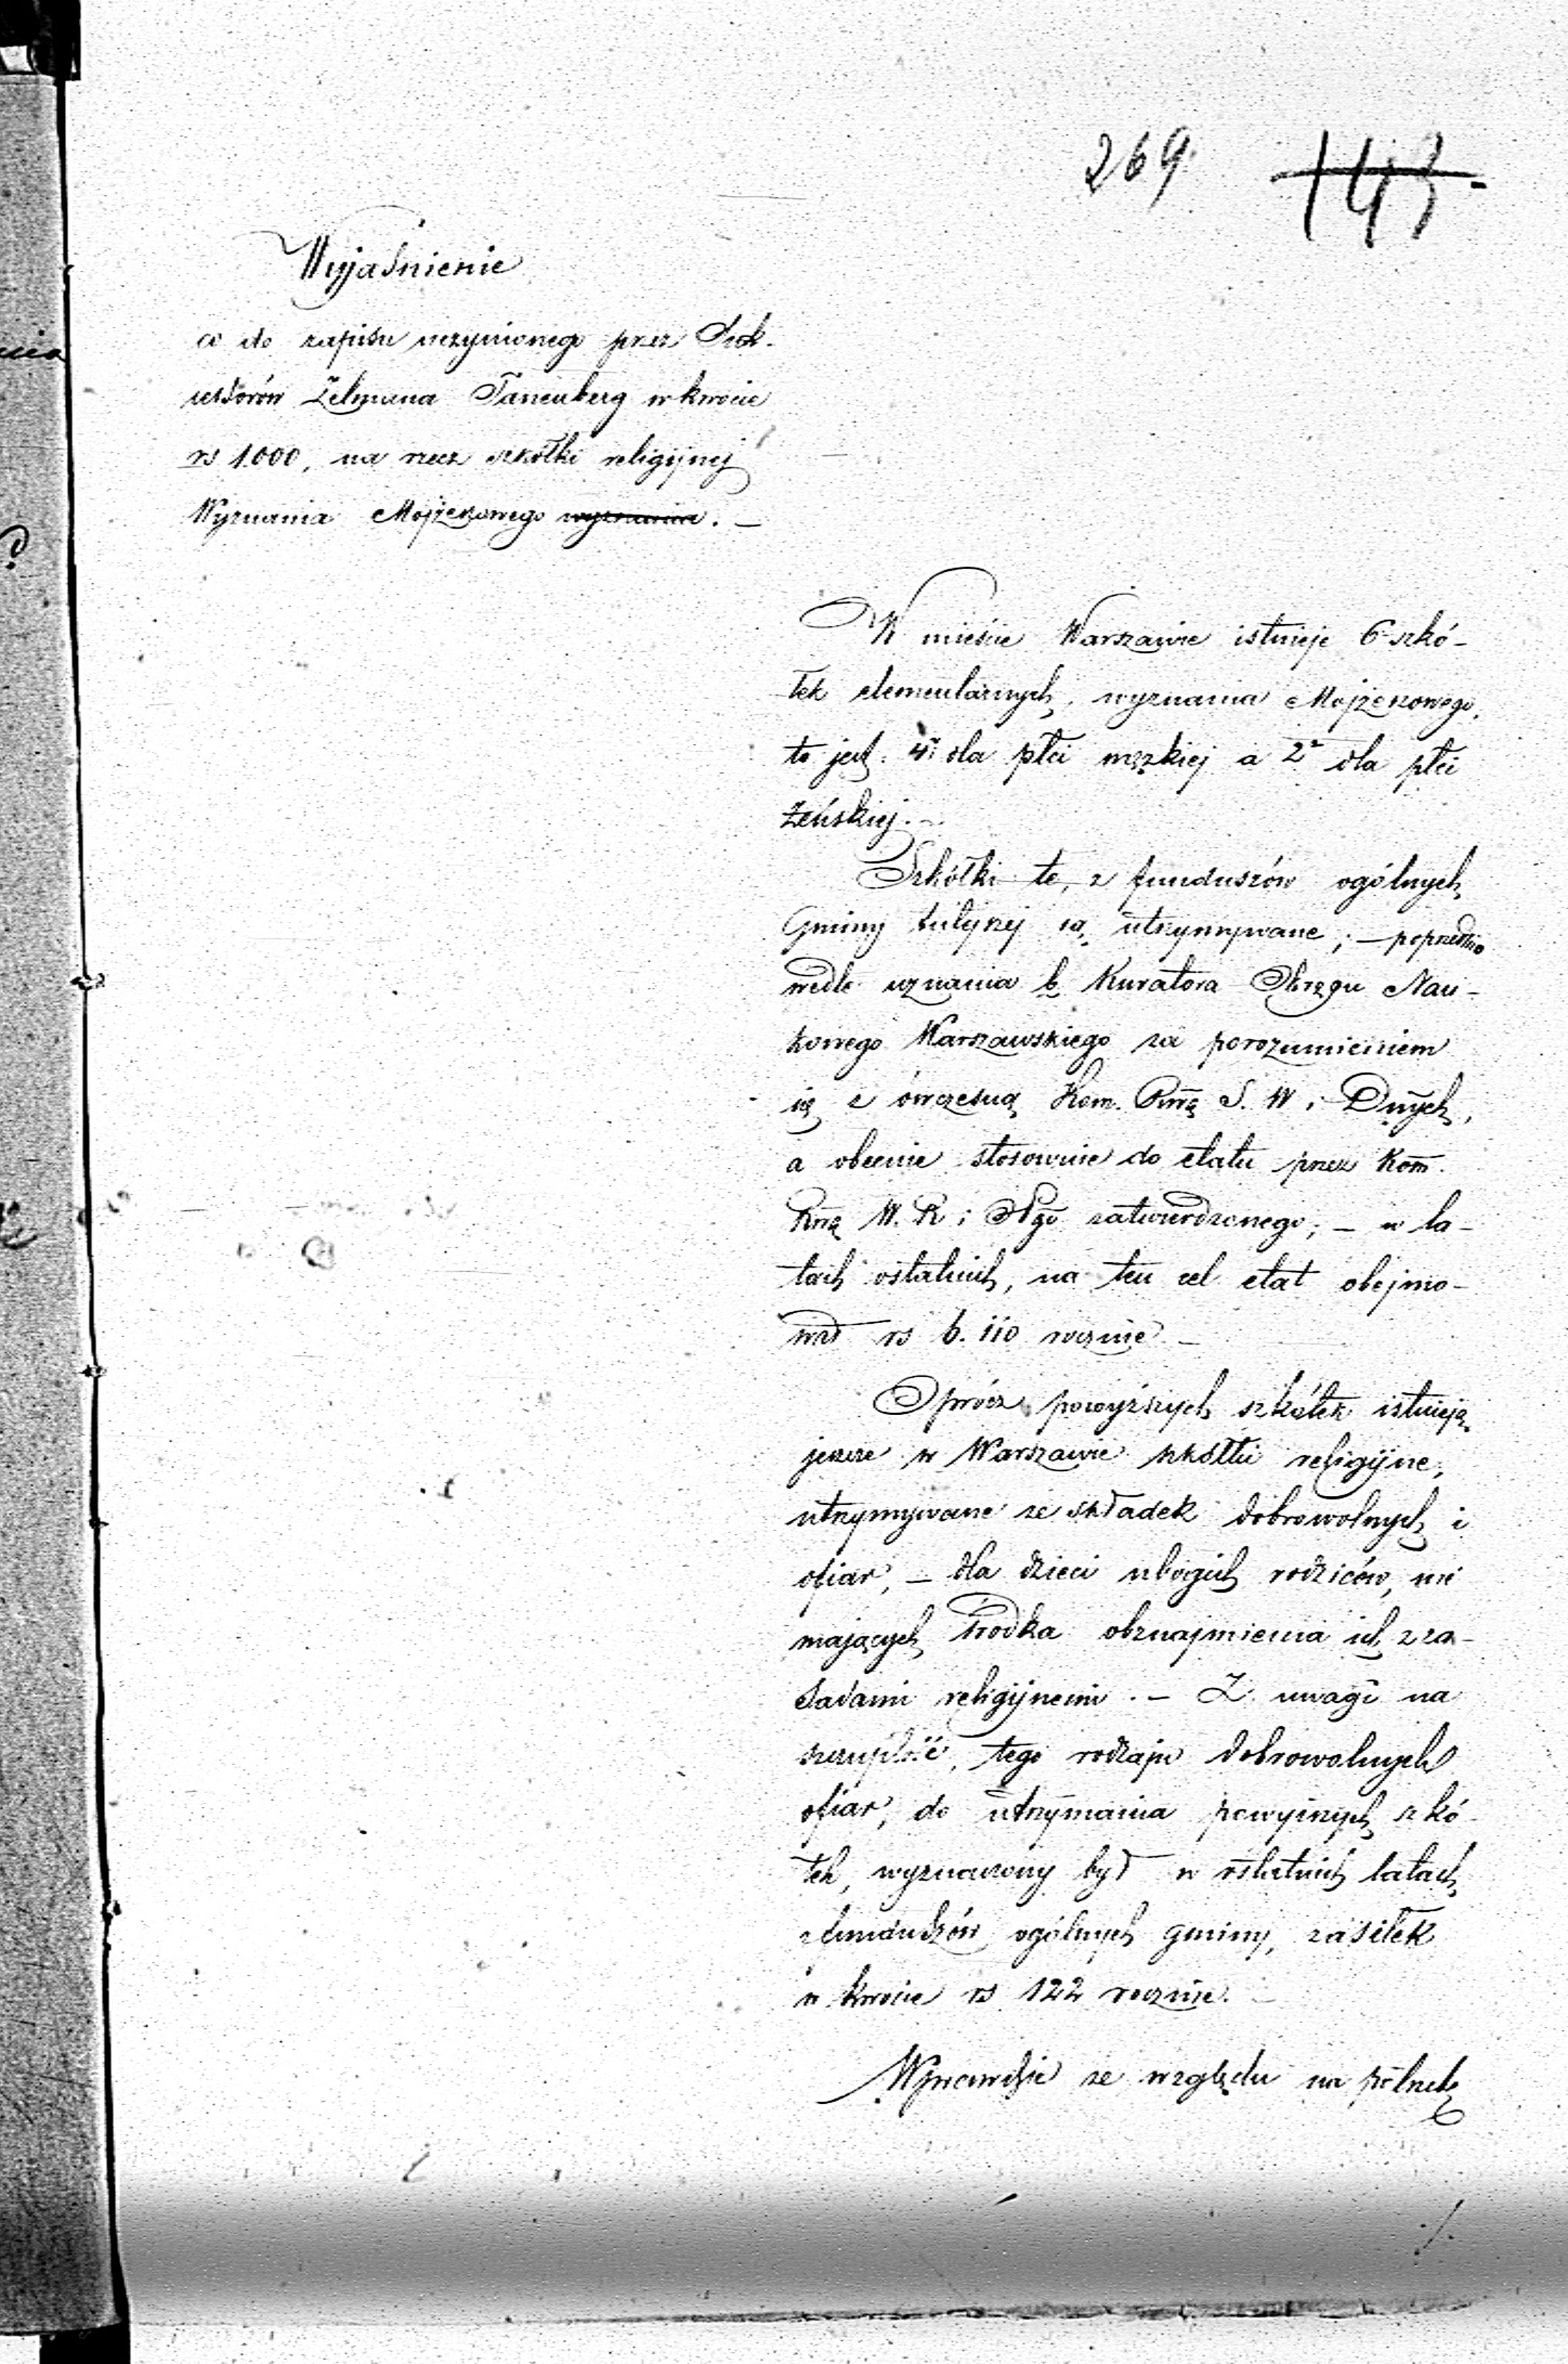 269 143
Wyjaśnienie
co do zapisu uczynionego przez Suk-
cessorów Zelmana Tanenberg w kwocie
rs 1.000, na rzecz szkółki religijnej
Wyznania Mojżeszowego wyznania. —
W mieście Warszawie istnieje 6 szkó-
łek elementarnych, wyznania Mojżeszowego,
to jest: 4 dla płci męzkiej a 2 dla płci
żeńskiej. —
Szkółki te, z funduszów ogólnych
Gminy tutejszej są utrzymywane; — poprzednio
wedle uznania b. Kuratora Okręgu Nau-
kowego Warszawskiego za porozumieniem
się z ówczesną Kom. Rną S. W. i Dnych,
a obecnie stosownie do etatu przez Kom.
Rną W. R. i Ngo zatwierdzonego; — w la-
tach ostatnich, na ten cel etat obejmo-
wał rs 6.110 rocznie —
Oprócz powyższych szkółek istnieją
jeszcze w Warszawie szkółki religijne,
utrzymywane ze składek dobrowolnych i
ofiar, — dla dzieci ubogich rodziców, nie
mających środka obznajmienia ich z za-
sadami religijnemi. — Z uwagi na
szczupłość, tego rodzaju dobrowolnych
ofiar, do utrzymania powyższych szkó-
łek, wyznaczony był w ostatnich latach
z funduszów ogólnych gminy, zasiłek
w kwocie rs 122 rocznie. —
Wprawdzie ze względu na